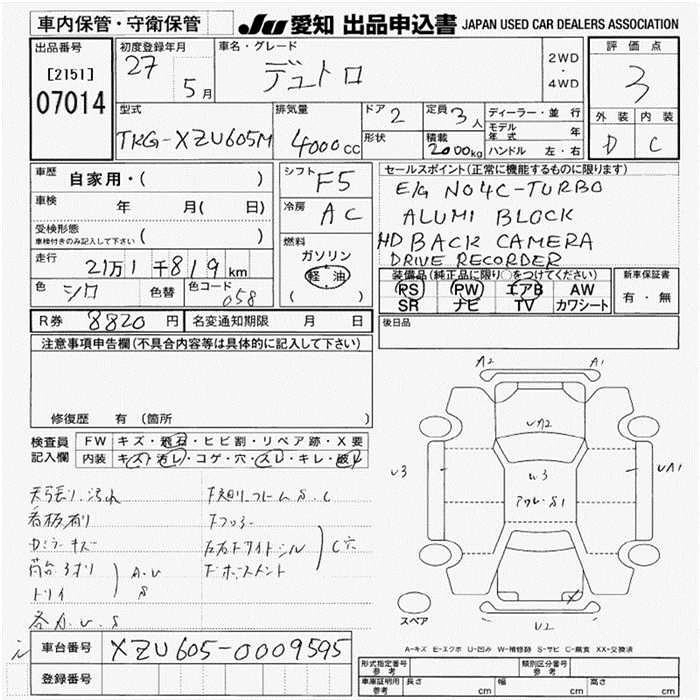 車内保管・守衛保管
JU 愛知 出品申込書 JAPAN USED CAR DEALERS ASSOCIATION
出品番号
[2151]
07014
初度登録年月
27 5月
車名・グレード
デュトロ
2WD
・
4WD
評価点
3
外装 内装
D C
型式
TKG-XZU605M
排気量
4000cc
ドア 2
形状
定員 3人
積載 2000kg
ディーラー・並行
モデル年式 年
ハンドル 左・右
車歴 自家用・( )
車検 年 月( 日)
受検形態
車検付きのみ記入して下さい ( )
走行
21万1千819km
色 シロ 色替 色コード 058
シフト F5
冷房 AC
燃料
ガソリン
軽油
( )
セールスポイント(正常に機能するものに限ります)
E/G N04C-TURBO
ALUMI BLOCK
HD BACK CAMERA
DRIVE RECORDER
装備品(純正品に限り○をつけてください)
PS PW エアB AW
SR ナビ TV カワシート
新車保証書
有・無
R券 8820円 名変通知期限 月 日
後日品
注意事項申告欄(不具合内容等は具体的に記入して下さい)
修復歴 有(箇所 )
検査員
記入欄
FW キズ・飛石・ヒビ割・リペア跡・X要
内装 キズ・汚レ・コゲ・穴・スレ・キレ・破レ
天張り汚れ
看板有り
Dミラーキズ
荷台
A.U
S
下廻りフレームS.C
C穴
A2 A1
UA2
U3
U3
UA1
S1
X
U2
スペア
A-キズ E-エクボ U-凹み W-補修跡 S-サビ C-腐食 XX-交換済
車台番号 XZU605-0009595
登録番号
型式指定番号
参考
類別区分番号
参考
車庫証明用
参考
長さ cm 幅 cm 高さ cm